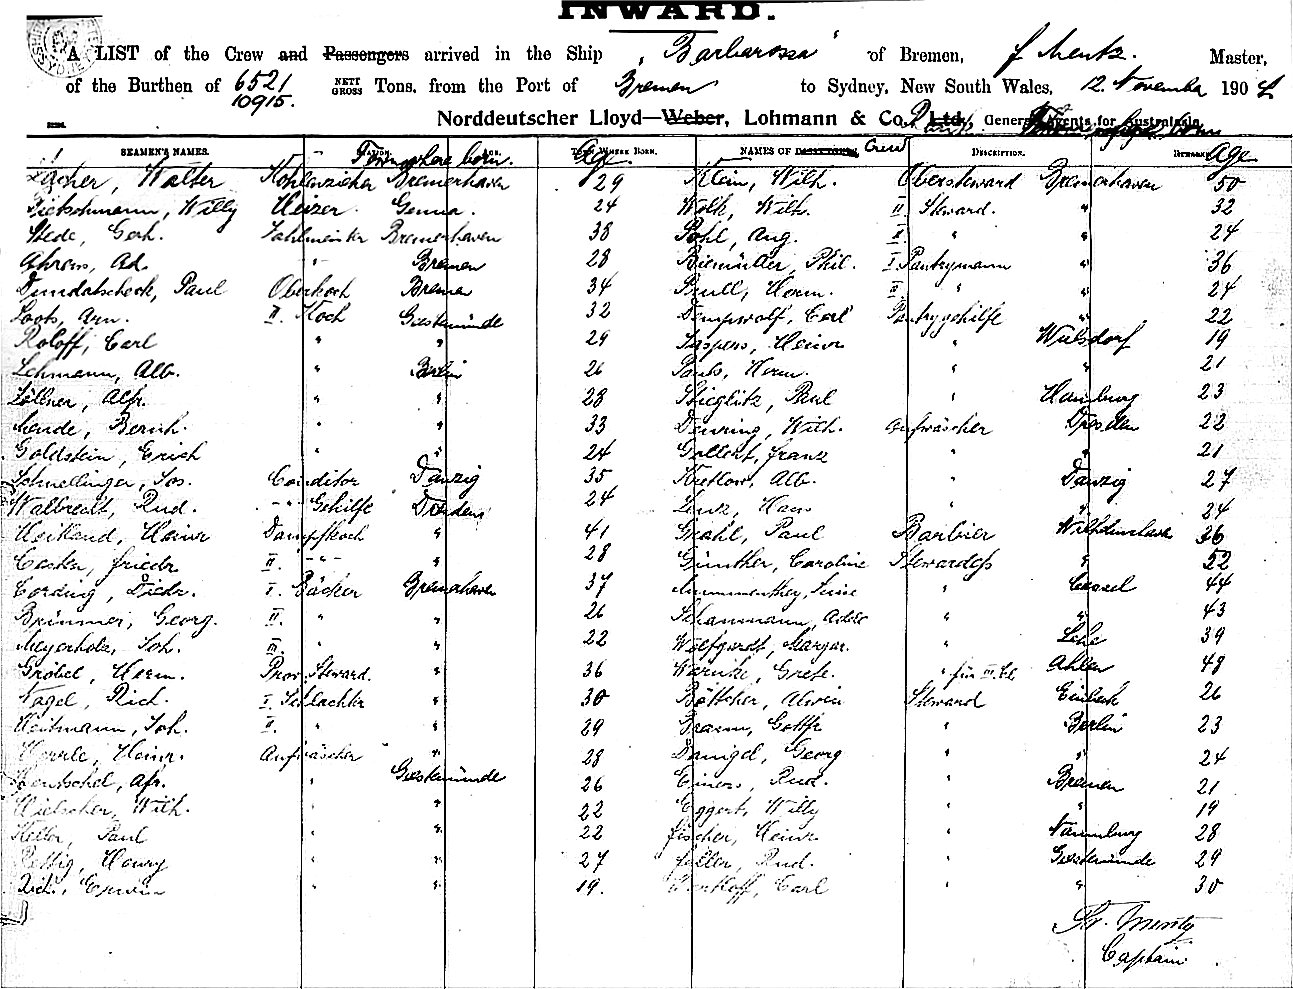 INWARD.
A LIST of the Crew and Passengers arrived in the Ship "Barbarossa" of Bremen, F Mentz. Master,
of the Burthen of 6521 NETT GROSS Tons, from the Port of Bremen to Sydney, New South Wales, 12 November 1904
10915.
Norddeutscher Lloyd—Weber, Lohmann & Co Ltd. General Agents for Australasia
SEAMEN'S NAMES. STATION. From where born. AGE. Age TOWN WHERE BORN. NAMES OF PASSENGERS, Crew DESCRIPTION. REMARKS Age
Walter Kohlenzieher Bremerhaven 29 Klein, Wilh. Obersteward Bremerhaven 50
Willy Heizer. 24 Wilh. II Steward. " 32
Gerh. Zahlmeister Bremerhaven 38 Pohl, Aug. II. " " 24
Ahrens, Ad. " Bremen 28 Phil. I Pantrymann " 36
Paul Oberkoch Bremen 34 Herm. II " " 24
II. Koch Geestemünde 32 Dempwolf, Carl Pantrygehilfe " 22
Roloff, Carl " " 29 Heinr " Wulsdorf 19
Lehmann, Alb. " Berlin 26 Herm. " " 21
Zöllner, Alfr. " " 28 Stieglitz, Paul " Hamburg 23
Bernh. " " 33 Wilh. Aufwäscher Dresden 22
Goldstein, Erich " " 24 Gollert, Franz " " 21
Schnellinger, Jos. Conditor Danzig 35 Alb. " Danzig 27
Walbrecht, Rud. -"- Gehilfe Dresden 24 Hans " " 24
Heinr Dampfkoch " 41 Paul Barbier Wilhelmshave 36
Friedr II. -"- " 28 Günther, Caroline Stewardess " 52
Cording, Diedr. I. Bäcker Bremerhaven 37 Luise " Cassel 44
Brümmer, Georg. II. " " 26 Adele " " 43
Meyerholz, Joh. III. " " 22 Margar. " Lehe 39
Gröbel, Herm. Prov. Steward. " 36 Warnke, Grete. " für III. Cl. Ahlen 48
Nagel, Rich. I. Schlachter " 30 Böttcher, Alwin Steward Einbeck 26
Heitmann, Joh. II. " " 29 Braun, Gottfr " Berlin 23
Heinr. Aufwäscher " 28 Georg " " 24
Hentschel, Afr. " Geestemünde 26 Rud. " Bremen 21
Hielscher, Wilh. " " 22 Eggert, Willy " " 19
Keller, Paul " " 22 Fischer, Heinr " Naumburg 28
Rettig, Henry " " 27 Rud. " Geestemünde 29
Erwin " " 19. Carl " " 30
Fr. Mentz
Captain